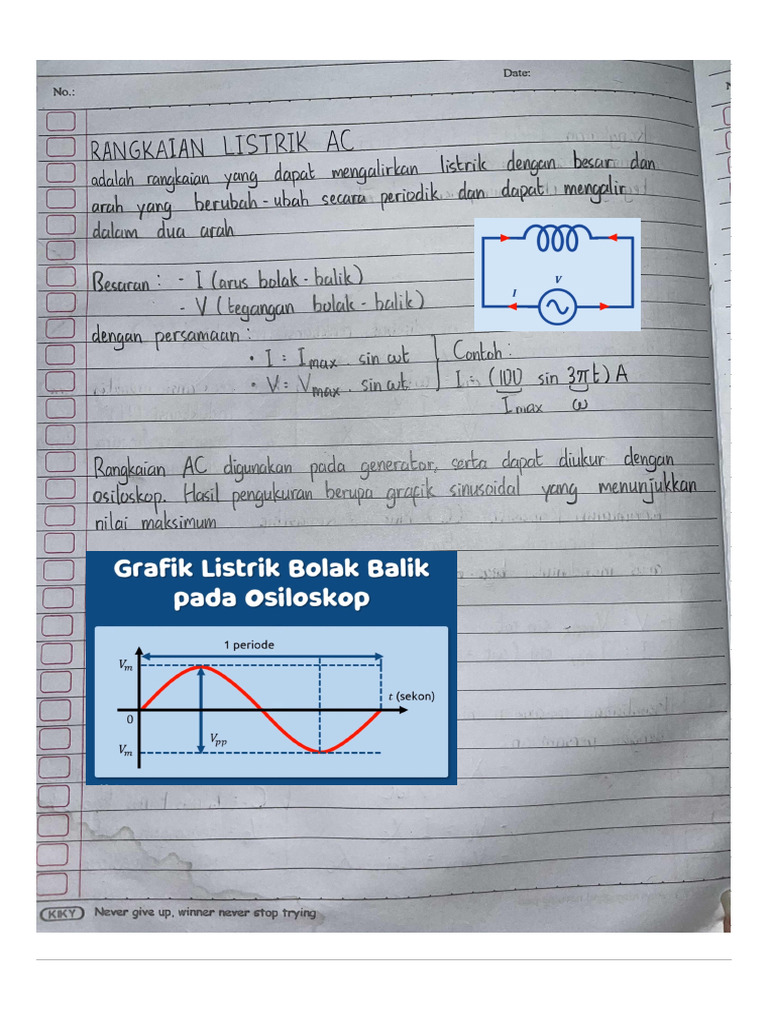 Date:
No.:
RANGKAIAN LISTRIK AC
adalah rangkaian yang dapat mengalirkan listrik dengan besar dan
arah yang berubah-ubah secara periodik dan dapat mengalir
dalam dua arah
V
I
Besaran : - I (arus bolak-balik)
- V (tegangan bolak-balik)
dengan persamaan :
• I = Imax . sin ωt
• V = Vmax . sin ωt
Contoh :
I = (100 sin 3πt) A
Imax ω
Rangkaian AC digunakan pada generator, serta dapat diukur dengan
osiloskop. Hasil pengukuran berupa grafik sinusoidal yang menunjukkan
nilai maksimum
Grafik Listrik Bolak Balik
pada Osiloskop
1 periode
Vm
t (sekon)
0
Vpp
Vm
KIKY Never give up, winner never stop trying